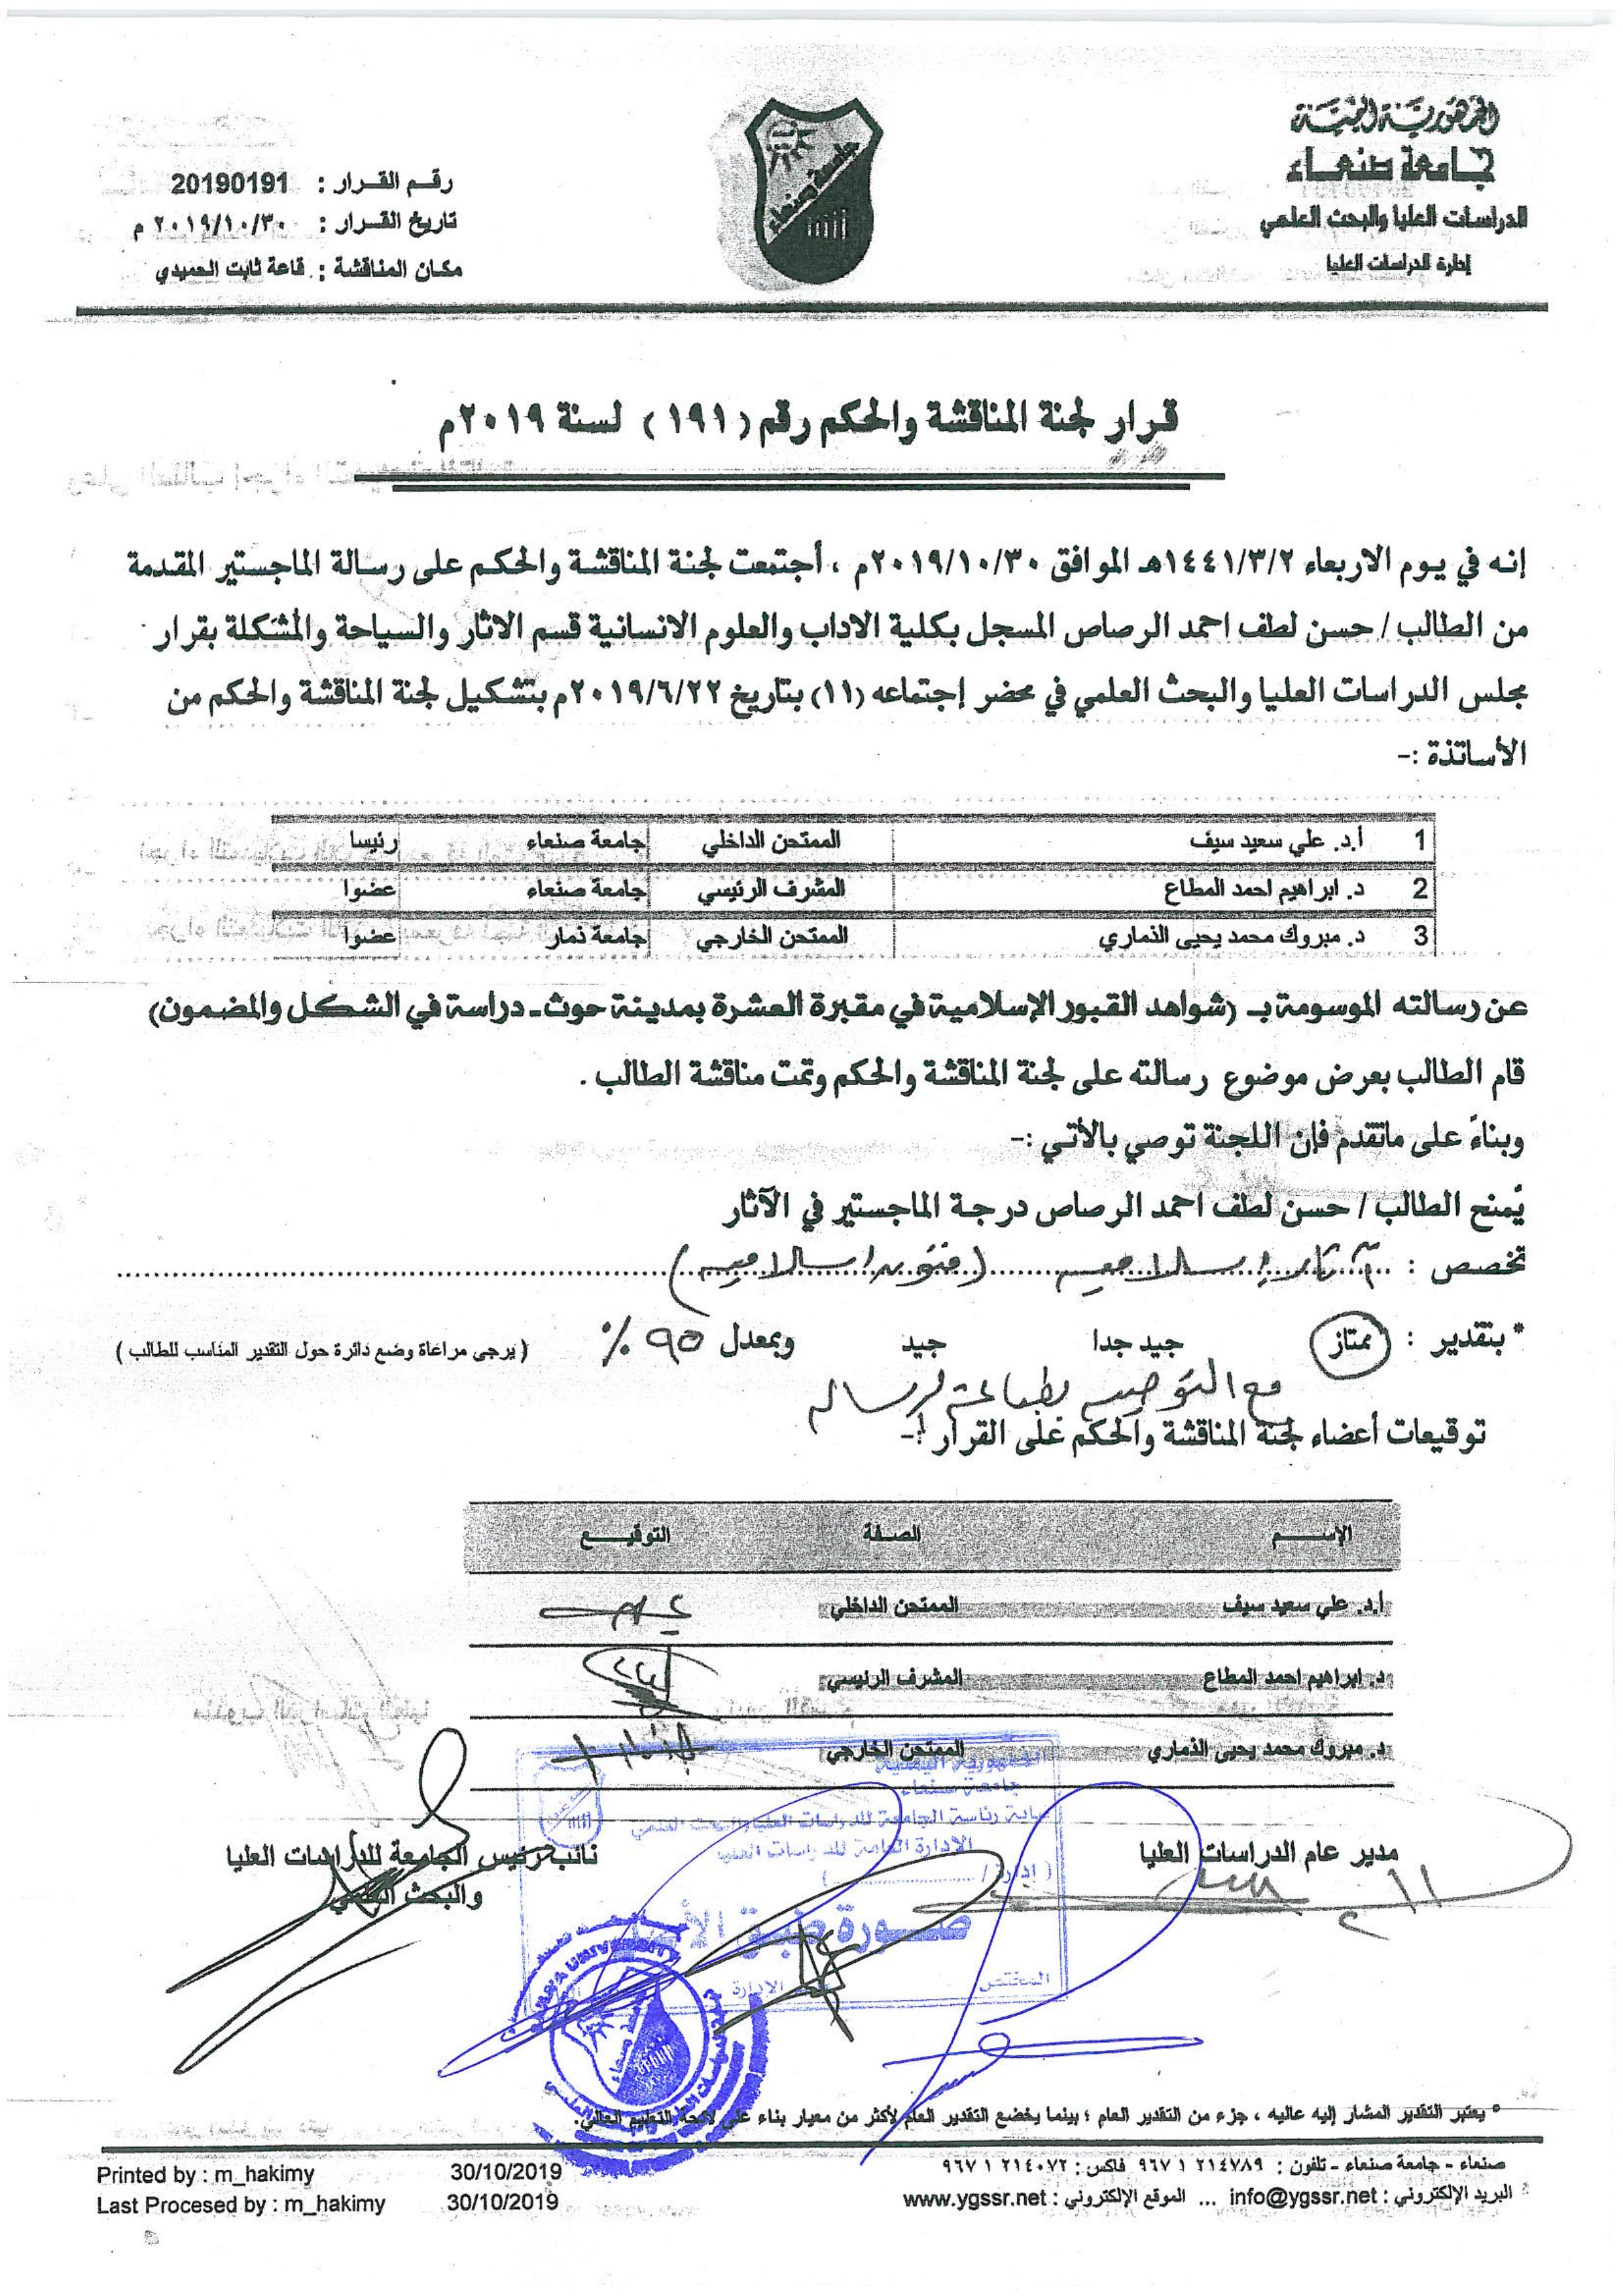 الجمهورية اليمنية
جامعة صنعاء
الدراسات العليا والبحث العلمي
إدارة الدراسات العليا
جامعة صنعاء
رقم القرار : 20190191
تاريخ القرار : ٢٠١٩/١٠/٣٠ م
مكان المناقشة : قاعة ثابت الحميدي
قرار لجنة المناقشة والحكم رقم ( ١٩١ ) لسنة ٢٠١٩م
إنه في يوم الاربعاء ١٤٤١/٣/٢هـ الموافق ٢٠١٩/١٠/٣٠م ، أجتمعت لجنة المناقشة والحكم على رسالة الماجستير المقدمة
من الطالب / حسن لطف احمد الرصاص المسجل بكلية الاداب والعلوم الانسانية قسم الاثار والسياحة والمشكلة بقرار
مجلس الدراسات العليا والبحث العلمي في محضر إجتماعه (١١) بتاريخ ٢٠١٩/٦/٢٢م بتشكيل لجنة المناقشة والحكم من
الأساتذة :-
1 أ.د. علي سعيد سيف الممتحن الداخلي جامعة صنعاء رئيسا
2 د. ابراهيم احمد المطاع المشرف الرئيسي جامعة صنعاء عضوا
3 د. مبروك محمد يحيى الذماري الممتحن الخارجي جامعة ذمار عضوا
عن رسالته الموسومة بـ (شواهد القبور الإسلامية في مقبرة العشرة بمدينة حوث- دراسة في الشكل والمضمون)
قام الطالب بعرض موضوع رسالته على لجنة المناقشة والحكم وتمت مناقشة الطالب .
وبناءً على ماتقدم فإن اللجنة توصي بالأتي :-
يُمنح الطالب / حسن لطف احمد الرصاص درجة الماجستير في الآثار
تخصص : آثار إسلامية (فنون إسلامية)
* بتقدير : ممتاز جيد جدا جيد وبمعدل ٩٥ % ( يرجى مراعاة وضع دائرة حول التقدير المناسب للطالب )
مع التوصية بطباعة الرسالة
توقيعات أعضاء لجنة المناقشة والحكم على القرار :-
الإسـم الصفة التوقيع
أ.د. علي سعيد سيف الممتحن الداخلي
د. ابراهيم احمد المطاع المشرف الرئيسي
د. مبروك محمد يحيى الذماري الممتحن الخارجي
الجمهورية اليمنية
جامعة صنعاء
نيابة رئاسة الجامعة للدراسات العليا والبحث العلمي
الإدارة العامة للدراسات العليا
( إدارة / ............ )
صورة طبق الأصل
المختص الإدارة
مدير عام الدراسات العليا
نائب رئيس الجامعة للدراسات العليا
والبحث العلمي
* يعتبر التقدير المشار إليه عاليه ، جزء من التقدير العام ؛ بينما يخضع التقدير العام لأكثر من معيار بناء على لائحة التعليم العالي.
صنعاء - جامعة صنعاء - تلفون : ٢١٤٧٨٩ ١ ٩٦٧ فاكس : ٢١٤٠٧٢ ١ ٩٦٧
البريد الإلكتروني : info@ygssr.net ... الموقع الإلكتروني : www.ygssr.net
Printed by : m_hakimy 30/10/2019
Last Procesed by : m_hakimy 30/10/2019